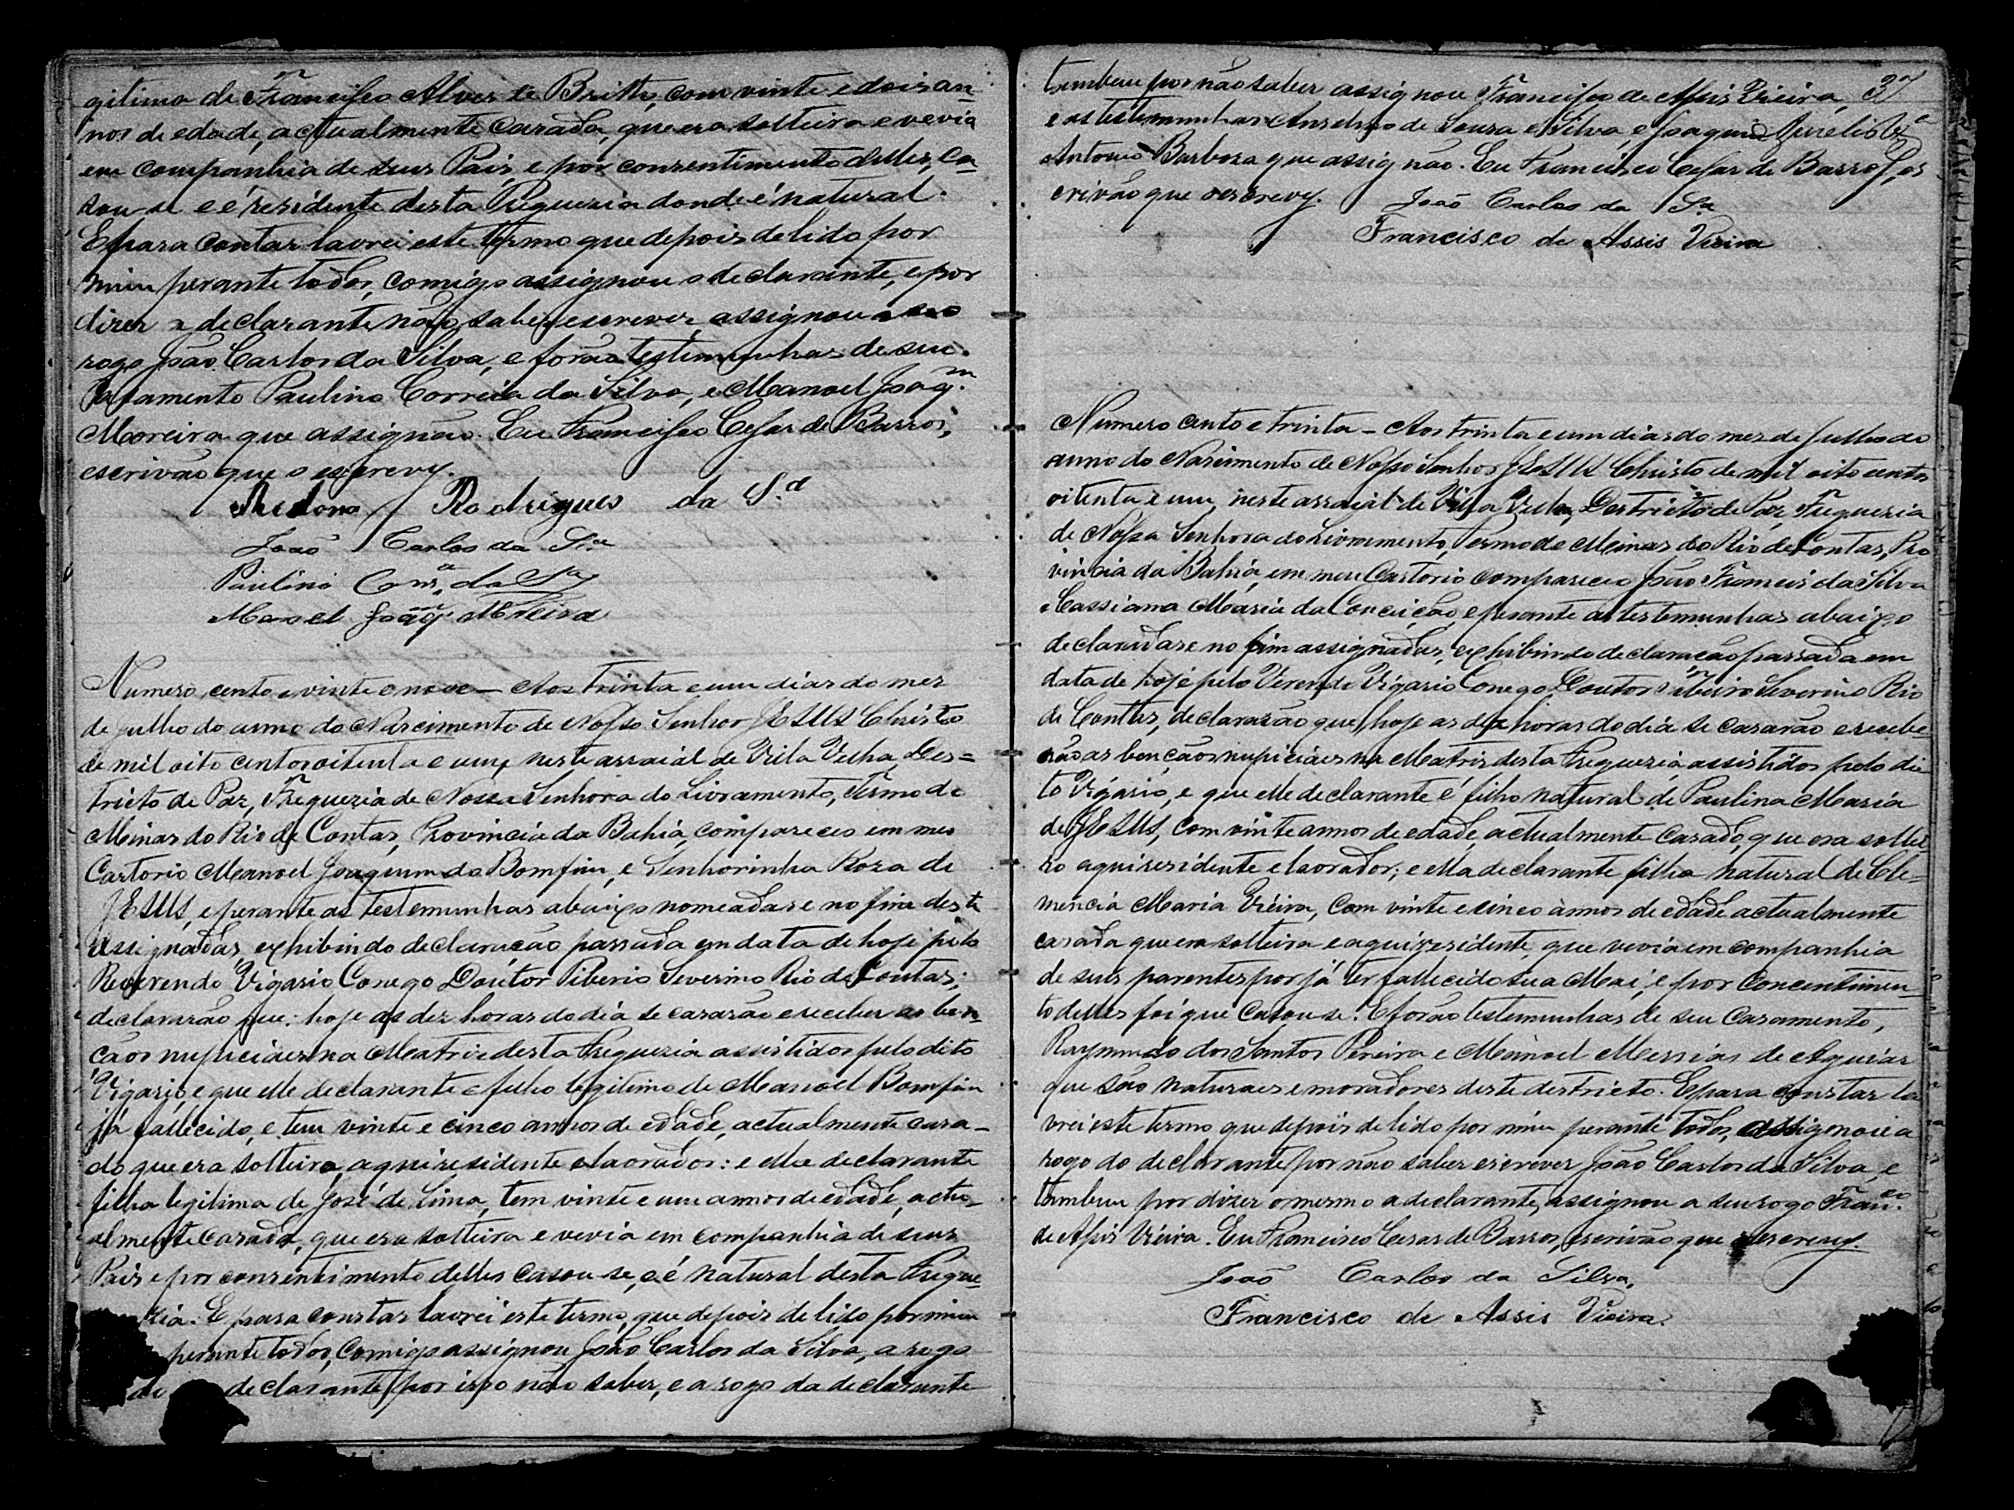 gitima de Francisco Alves de Britto, com vinte e dois an-
nos de edade, actualmente casada, que era solteira e vevia
em companhia de seus Pais, e por consentimento delles, ca-
sou-se e é residente desta Freguezia donde é natural.
E para contar lavrei este termo que depois de lido por
mim perante todos, comigo assignou o declarante, e por
dizer a declarante não saber escrever, assignou a seo
rogo João Carlos da Silva, e forão testimunhas de seu
Casamento Paulino Correia da Silva, e Manoel Joaqm.
Moreira que assignão. Eu Francisco Cesar de Barros,
escrivão que o escrevy.
Rodrigues da S.a
João Carlos da S.a
Paulino Corrª. da Sª
Manoel Joaqm Moreira
Numero cento e vinte e nove - Aos trinta e um dias do mez
de Julho do anno do Nascimento de Nosso Senhor JESUS Christo
de mil oito centos oitenta e um, neste arraial de Villa Velha, Des=
tricto de Paz, Freguezia de Nossa Senhora do Livramento, Termo de
Minas do Rio de Contas, Provincia da Bahia, compareceo em meu
Cartorio Manoel Joaquim do Bomfim, e Senhorinha Roza de
JESUS, e perante as testemunhas abaixo nomeadas e no fim deste
assignadas, exhibindo declaração passada em data de hoje pelo
Reverendo Vigario Conego Doutor Tiberio Severino Rio de Contas;
declararão que: hoje as dez horas do dia se casarão e receber as ben-
çãos nupiciaes na Matriz desta Freguezia assistidos pelo dito
Vigario, e que elle declarante é filho legitimo de Manoel Bomfim
já fallecido, e tem vinte e cinco annos de edade, actualmente casa-
do que era solteiro, aqui residente e lavrador: e ella declarante
filha legitima de José de Lima, tem vinte e um annos de edade, actu-
almente casada, que era solteira e vevia em companhia de seus
Pais e por consentimento delles casou-se, e é natural desta Fregue-
zia. E para constar lavrei este termo, que depois de lido por mim
perante todos, comigo assignou João Carlos da Silva, a rogo
do declarante, por isso não saber, e a rogo da declarante
tambem por não saber assignou Francisco de Assis Vieira, 37
e as testimunhas Anselmo de Souza e Silva, e Joaquim
Antonio Barboza que assignão. Eu Francisco Cesar de Barros, es
crivão que o escrevy.
João Carlos da Sa
Francisco de Assis Vieira
Numero cento e trinta - Aos trinta e um dias do mez de Julho do
anno do Nascimento de Nosso Senhor JESUS Christo de mil oito centos
oitenta e um, neste arraial de Villa Velha, Destricto de Paz, Freguezia
de Nossa Senhora do Livramento, Termo de Minas do Rio de Contas, Pro
vincia da Bahia, em meu Cartorio compareceo João Francis da Silva
e Cassiana Maria da Conceição, e perante as testemunhas abaixo
declaradas e no fim assignadas, exhibindo declaração passada em
data de hoje pelo Verendo Vigario Conego Doutor Tiberio Severino Rio
de Contas, declararão que, hoje as dez horas do dia se casarão e recebe-
rão as bençãos nupiciaes na Matriz desta Freguezia assistidos pelo di
to Vigario, e que elle declarante é filho natural de Paulina Maria
de JESUS, com vinte annos de edade, actualmente casado, que era soltei-
ro aqui residente e lavrador; e ella declarante filha natural de Cle-
mencia Maria Vieira, com vinte e cinco annos de edade actualmente
casada que era solteira e aqui residente, que vevia em companhia
de seus parentes por já ter fallecido sua Mai, e por concentimen-
to delles foi que casou-se. E forão testemunhas de seu casamento,
Raymundo dos Santos Pereira e Manoel Messias de Aguiar
que são naturaes e moradores deste destricto. E para constar la
vrei este termo que depois de lido por mim perante todos, assignou a
rogo do declarante, por não saber escrever João Carlos da Silva, e
tambem por dizer o mesmo a declarante, assignou a seu rogo Franco.
de Assis Vieira. Eu Francisco Cesar de Barros, escrivão que o escrevy.
João Carlos da Silva,
Francisco de Assis Vieira.